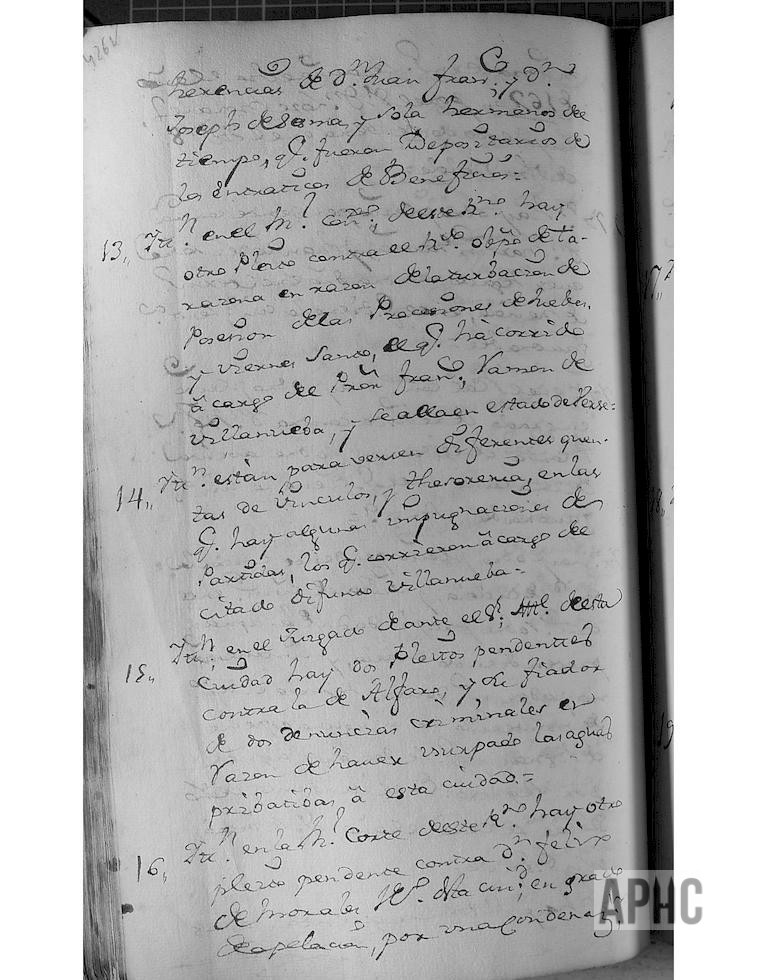 4262
herencias de Dn. Juan Franco. y Dn.
Joseph de soma, y sola hermanos de
tiempo, q. fueron Depositarios de
los entraticos de Benefizios=
13,, Ittn. en el Rl. conso. de este Rno. hay
otro Pleito contra el Rdo. obpo. de Ta-
razona en razon de la turbacion de
Posesion de las Procesiones de Juebes,
y Viernes Santo, el q. ha corrido
â cargo de Dn. Franco. Ramon de
Villanueba, y se alla en estado de
14,, Ittn. estàn para verse diferentes quen-
tas de Vinculos, y thesoreria, en las
q. hay algunas impugnaciones de
Partidas, los q. corrieron â cargo de
citado difunto Villanueba=
15,, Ittn. en el Juzgado de ante el Sr. Alle. de esta
Ciudad hay dos pleitos pendentes
contra la de Alfaro, y su fiador
de dos denuncias criminales en
Razon de haver usurpado las aguas
pribatibas â esta ciudad.=
16,, Ittn. en la Rl. Corte de este Rno. hay otro
pleito pendente contra Dn. felix
de Morales de esta ciud. en grado
de apelacion, por una Condenazn.
17,,
18,,
19
APHC